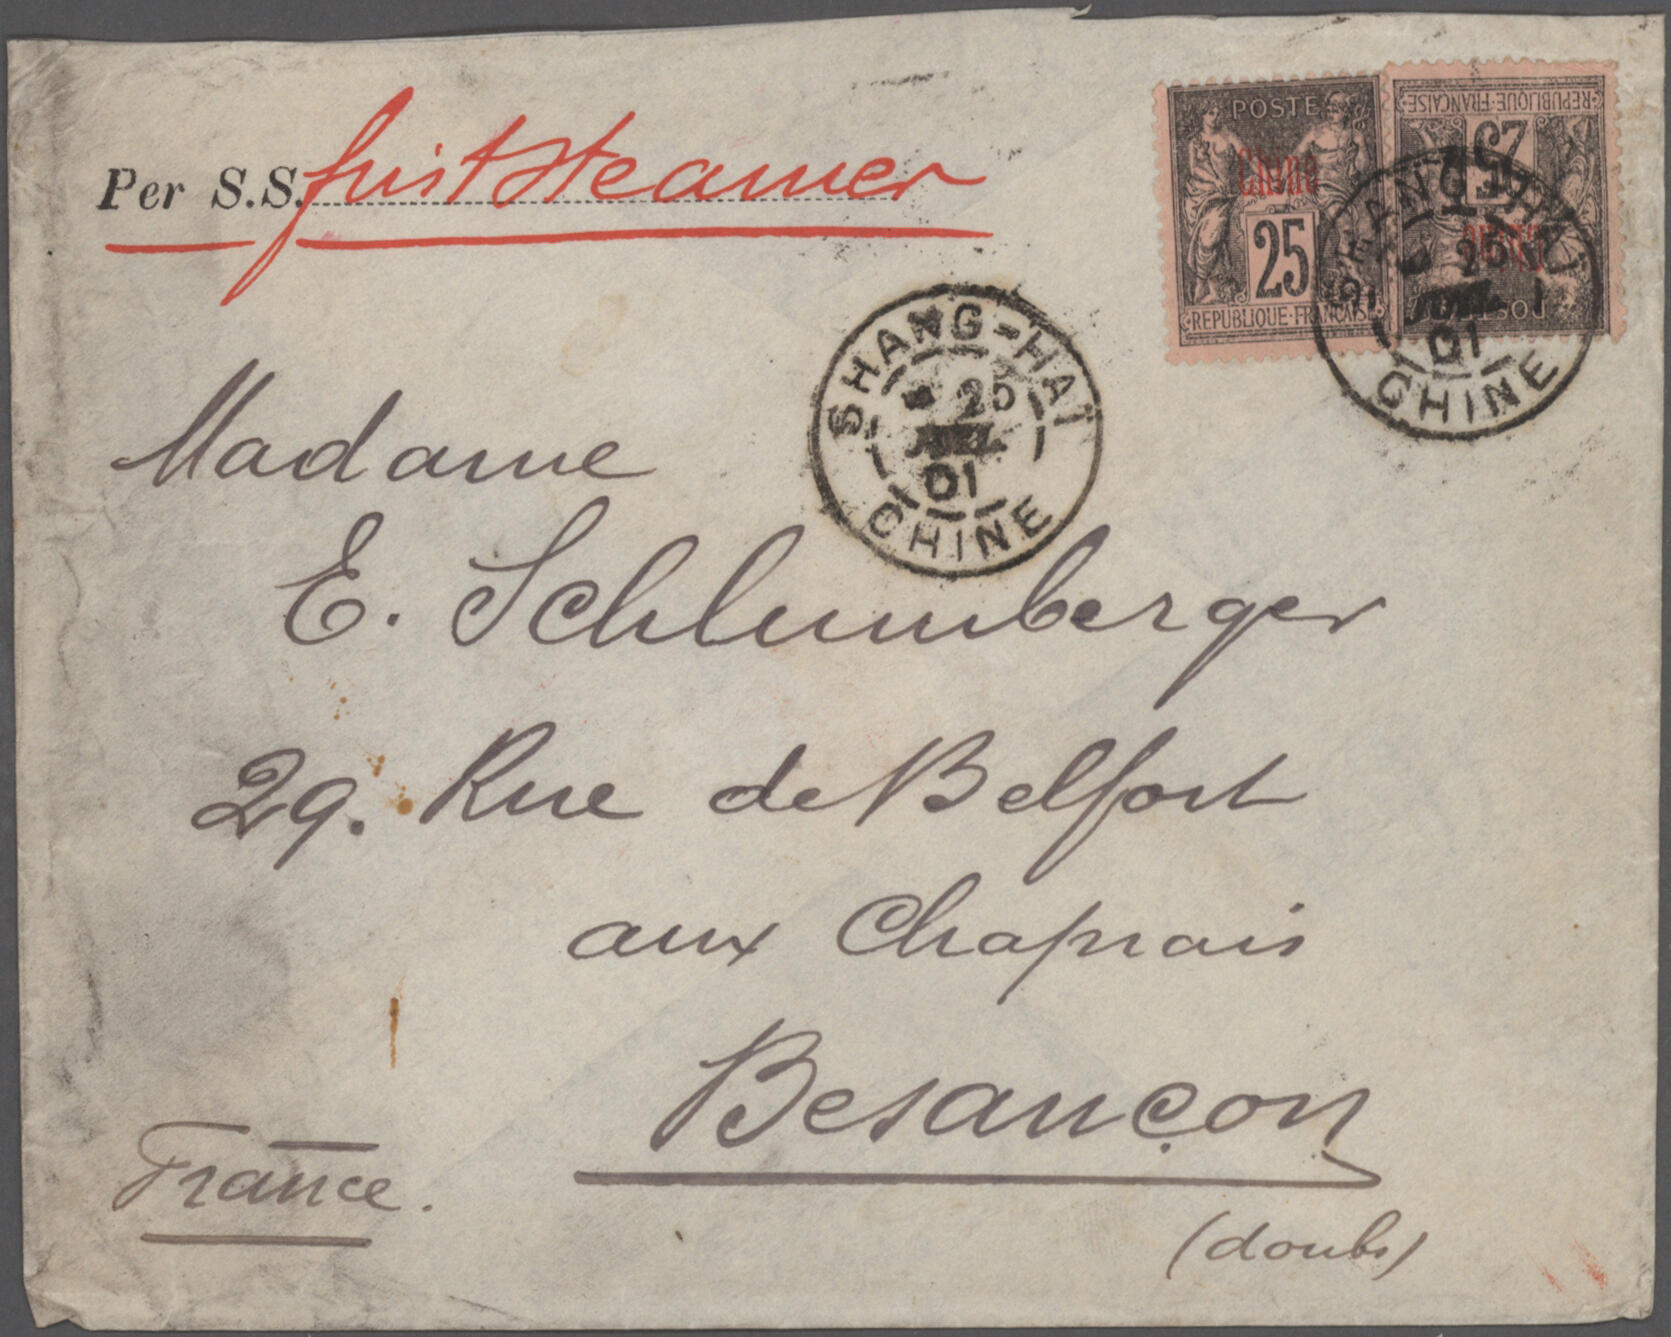 Per S.S. first steamer
POSTE
Chine
25
REPUBLIQUE·FRANÇAISE
REPUBLIQUE·FRANÇAISE
25
Chine
POSTE
SHANG-HAI
25
JUIL
01
CHINE
SHANG-HAI
25
JUIL
01
CHINE
Madame
E. Schlumberger
29. Rue de Belfort
aux Chaprais
Besançon
France.
(doubs)